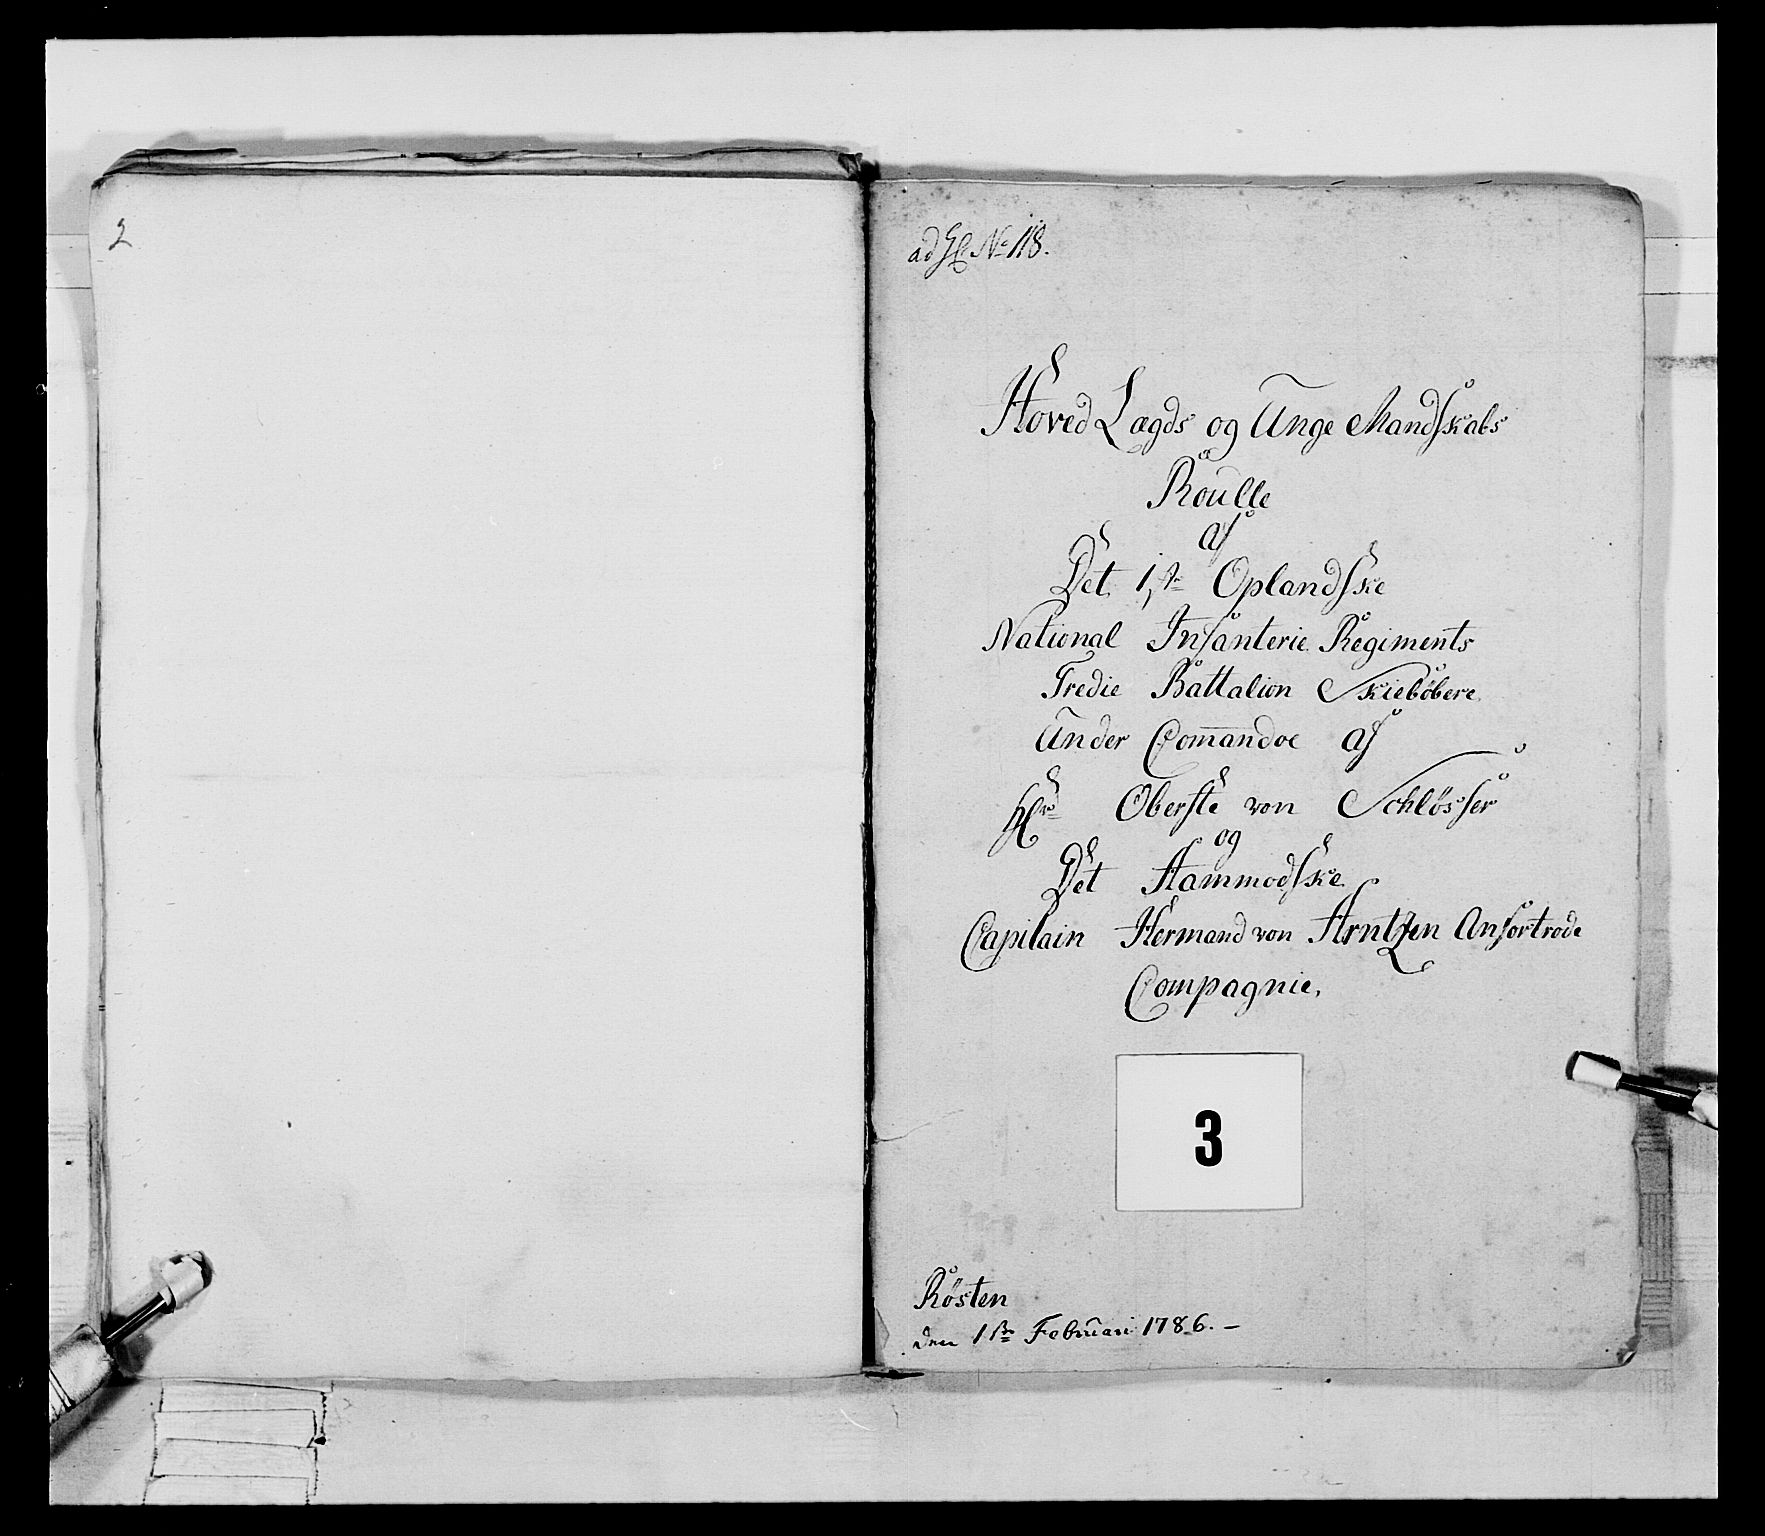 2
ad No 118.
Hoved Lægds og Unge Mandskabs
Roulle
af
Det 1ste Oplandske
National Infanterie Regiments
Tredie Battalion Skiebøbere
Under Com̄andoe af
Hr Oberste von Schlösser
og
Det Hammodske
Capitain Hermand von Arntzen Anfortrode
Compagnie,
3
Røsten
den 1ste Februari 1786. –